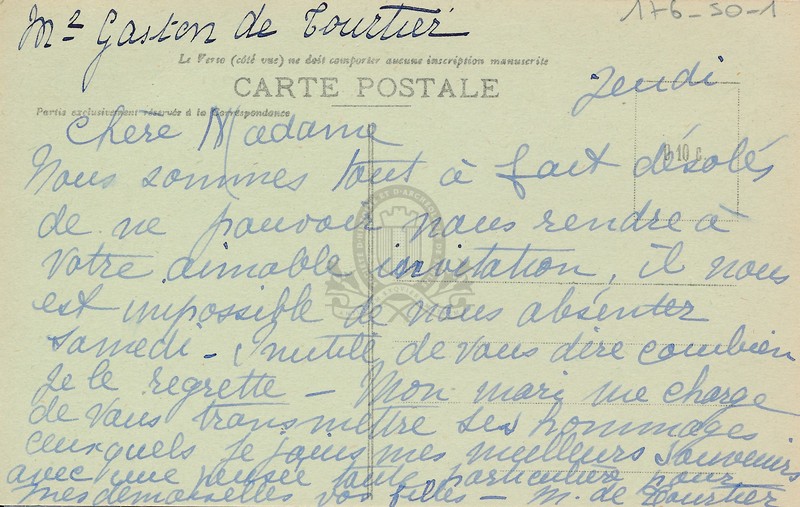 Mᵉ Gaston de Tourtier
176-50-1
Le Verso (côté vue) ne doit comporter aucune inscription manuscrite
CARTE POSTALE
Jeudi
Partie exclusivement réservée à la Correspondance
0,10 c.
Chère Madame
Nous sommes tout à fait désolés
de ne pouvoir nous rendre à
votre aimable invitation, il nous
est impossible de nous absenter
samedi - Inutile de vous dire combien
je le regrette - Mon mari me charge
de vous transmettre ses hommages
auxquels je joins mes meilleurs souvenirs
avec une pensée toute particulière pour
mesdemoiselles vos filles - M. de Tourtier